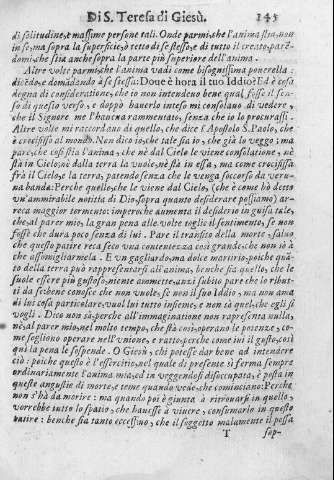 Di S. Teresa di Giesù. 145
di solitudine, e massime persone tali. Onde parmi, che l'anima stia, non
in se, ma sopra la superficie, ò tetto di se stesso, e di tutto il creato, paren-
domi, che stia anche sopra la parte più superiore dell'anima.
Altre volte parmi, che l'anima vadi come bisognosissima poverella:
dicendo, e domandando à se stessa: Doue è hora il tuo Iddio? Ed è cosa
degna di consideratione, che io non intendeno bene qual fosse il sen-
so di questo verso, e doppò hauerlo inteso mi consolano di vedere,
che il Signore me l'haueua rammentato, senza che io lo procurassi.
Altre volte mi raccordauo di quello, che dice l'Apostolo S. Paolo, che
è crocifisso al mondo. Non dico io, che tale sia io, che già lo veggo; ma
pare, che così stia l'anima, che nè dal Cielo le viene consolatione, nè
stà in Cielo; nè dalla terra la vuole, nè stà in essa, ma come crocifissa
frà il Cielo, e la terra, patendo senza che le venga soccorso da veru-
na banda: Perche quello, che le viene dal Cielo, (che è come hò detto
vn'ammirabile notitia di Dio, sopra quanto desiderare possiamo) ar-
reca maggior tormento: imperoche aumenta il desiderio in guisa tale,
che, al parer mio, la gran pena alle volte toglie il sentimento, se non
fosse che dura poco senza di lui. Pare il transito della morte, saluo
che questo patire reca seco vna contentezza così grande, che non sò à
che assomigliarmela. E vn gagliardo, ma dolce martirio, poiche quā-
to della terra può rappresentarsi all'anima, benche sia quello, che le
suole essere più gustoso, niente ammette; anzi subito pare che lo ribut-
ti da se; bene conosce che non vuole, se non il suo Iddio, ma non ama
di lui cosa particolare, vuol lui tutto insieme, e non sà quel, che egli si
vogli. Dico non sà, perche all'immaginatione non rapresenta nulla,
nè, al parer mio, nel molto tempo, che stà così, operano le potenze, co-
me sogliono operare nell'vnione, e ratto, perche come iui il gusto, così
quì la pena le sospende. O Giesù, chi potesse dar bene ad intendere
ciò: poiche questo è l'essercitio, nel quale di presente si ferma sempre
ordinariamente l'anima mia; ed in veggendosi disoccupata, è posta in
queste angustie di morte, e teme quando vede, che cominciano: Perche
non s'hà da morire: ma quando poi è giunta à ritrouarsi in quello,
vorrebbe tutto lo spatio, che hauesse à viuere, consumarlo in questo
patire: benche sia tanto eccessiuo, che il soggetto malamente il possa
T sop-